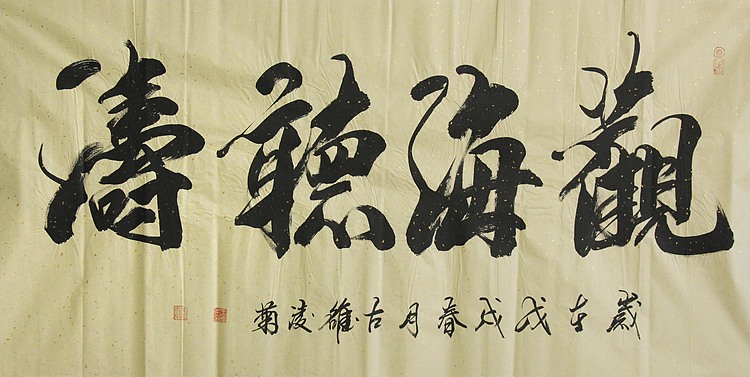 觀海聽濤
歲在戊戌春月古雒凌菊